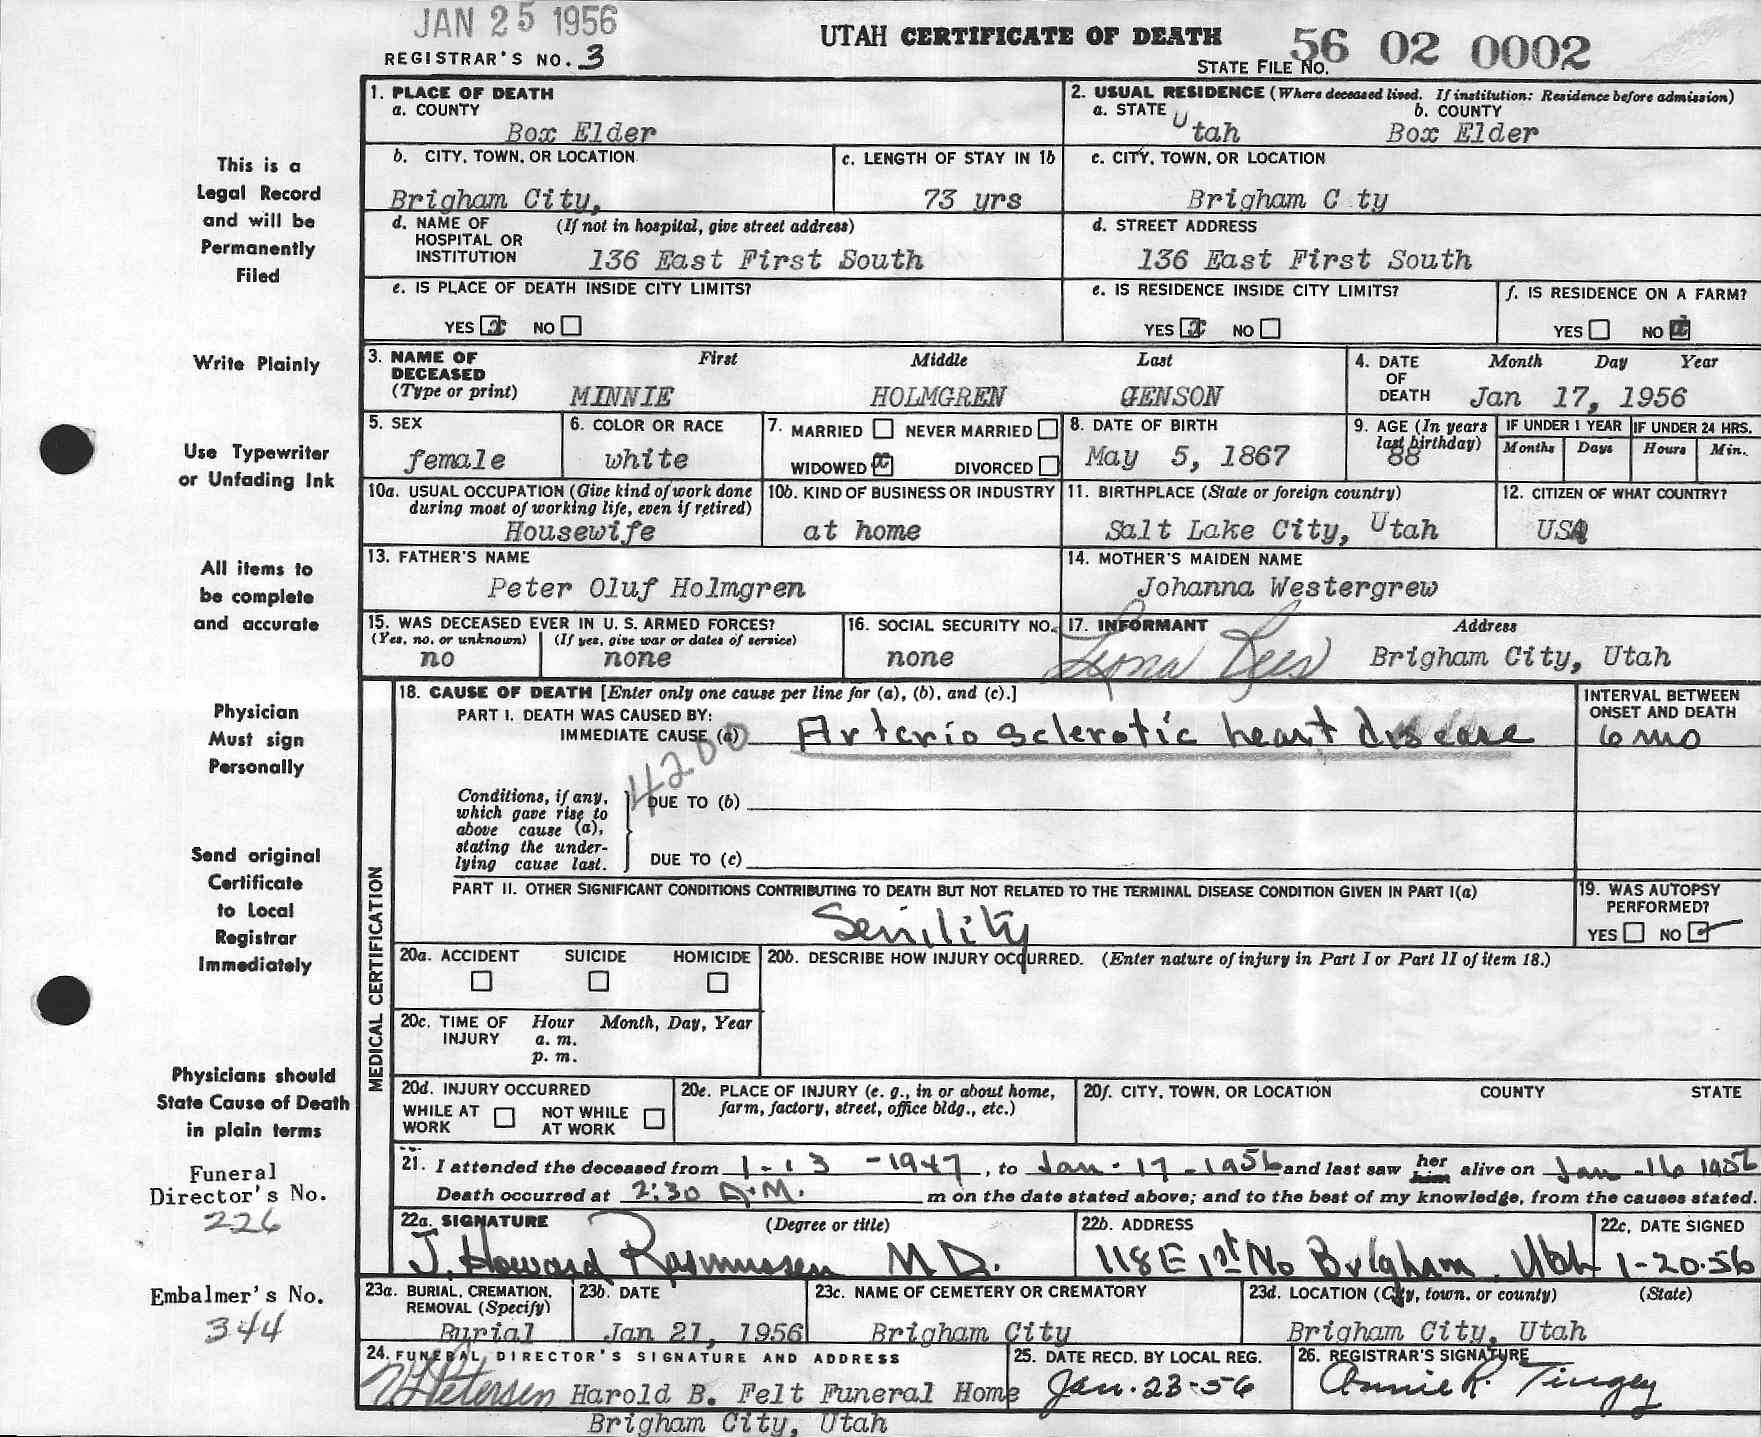 JAN 25 1956
REGISTRAR'S NO. 3
UTAH CERTIFICATE OF DEATH
STATE FILE No. 56 02 0002
This is a
Legal Record
and will be
Permanently
Filed
Write Plainly
Use Typewriter
or Unfading Ink
All items to
be complete
and accurate
Physician
Must sign
Personally
Send original
Certificate
to Local
Registrar
Immediately
Physicians should
State Cause of Death
in plain terms
Funeral
Director's No.
226
Embalmer's No.
344
1. PLACE OF DEATH
a. COUNTY
Box Elder
2. USUAL RESIDENCE (Where deceased lived. If institution: Residence before admission)
a. STATE Utah b. COUNTY Box Elder
b. CITY, TOWN, OR LOCATION
Brigham City,
c. LENGTH OF STAY IN 1b
73 yrs
c. CITY, TOWN, OR LOCATION
Brigham C ty
d. NAME OF HOSPITAL OR INSTITUTION (If not in hospital, give street address)
136 East First South
d. STREET ADDRESS
136 East First South
e. IS PLACE OF DEATH INSIDE CITY LIMITS?
YES x NO
e. IS RESIDENCE INSIDE CITY LIMITS?
YES x NO
f. IS RESIDENCE ON A FARM?
YES NO x
3. NAME OF DECEASED (Type or print)
First Middle Last
MINNIE HOLMGREN JENSON
4. DATE OF DEATH
Month Day Year
Jan 17, 1956
5. SEX
female
6. COLOR OR RACE
white
7. MARRIED NEVER MARRIED
WIDOWED x DIVORCED
8. DATE OF BIRTH
May 5, 1867
9. AGE (In years last birthday)
88
IF UNDER 1 YEAR
Months Days
IF UNDER 24 HRS.
Hours Min.
10a. USUAL OCCUPATION (Give kind of work done during most of working life, even if retired)
Housewife
10b. KIND OF BUSINESS OR INDUSTRY
at home
11. BIRTHPLACE (State or foreign country)
Salt Lake City, Utah
12. CITIZEN OF WHAT COUNTRY?
USA
13. FATHER'S NAME
Peter Oluf Holmgren
14. MOTHER'S MAIDEN NAME
Johanna Westergrew
15. WAS DECEASED EVER IN U. S. ARMED FORCES?
(Yes, no, or unknown) (If yes, give war or dates of service)
no none
16. SOCIAL SECURITY NO.
none
17. INFORMANT Address
Leona Rees Brigham City, Utah
MEDICAL CERTIFICATION
18. CAUSE OF DEATH [Enter only one cause per line for (a), (b), and (c).]
PART I. DEATH WAS CAUSED BY:
IMMEDIATE CAUSE (a) Arterio sclerotic heart disease
INTERVAL BETWEEN ONSET AND DEATH
6 mo
4200
Conditions, if any, which gave rise to above cause (a), stating the underlying cause last.
DUE TO (b)
DUE TO (c)
PART II. OTHER SIGNIFICANT CONDITIONS CONTRIBUTING TO DEATH BUT NOT RELATED TO THE TERMINAL DISEASE CONDITION GIVEN IN PART I(a)
Senility
19. WAS AUTOPSY PERFORMED?
YES NO ✓
20a. ACCIDENT SUICIDE HOMICIDE
20b. DESCRIBE HOW INJURY OCCURRED. (Enter nature of injury in Part I or Part II of item 18.)
20c. TIME OF INJURY Hour Month, Day, Year
a. m.
p. m.
20d. INJURY OCCURRED
WHILE AT WORK NOT WHILE AT WORK
20e. PLACE OF INJURY (e. g., in or about home, farm, factory, street, office bldg., etc.)
20f. CITY, TOWN, OR LOCATION COUNTY STATE
21. I attended the deceased from 1-13-1947, to Jan-17-1956 and last saw her him alive on Jan-16 1956
Death occurred at 2:30 A.M. m on the date stated above; and to the best of my knowledge, from the causes stated.
22a. SIGNATURE (Degree or title)
J. Howard Rasmussen M D.
22b. ADDRESS
118 E 1st No Brigham, Utah
22c. DATE SIGNED
1-20-56
23a. BURIAL, CREMATION, REMOVAL (Specify)
Burial
23b. DATE
Jan 21, 1956
23c. NAME OF CEMETERY OR CREMATORY
Brigham City
23d. LOCATION (City, town, or county) (State)
Brigham City, Utah
24. FUNERAL DIRECTOR'S SIGNATURE AND ADDRESS
Petersen Harold B. Felt Funeral Home
Brigham City, Utah
25. DATE RECD. BY LOCAL REG.
Jan-23-56
26. REGISTRAR'S SIGNATURE
Annie R. Tingey